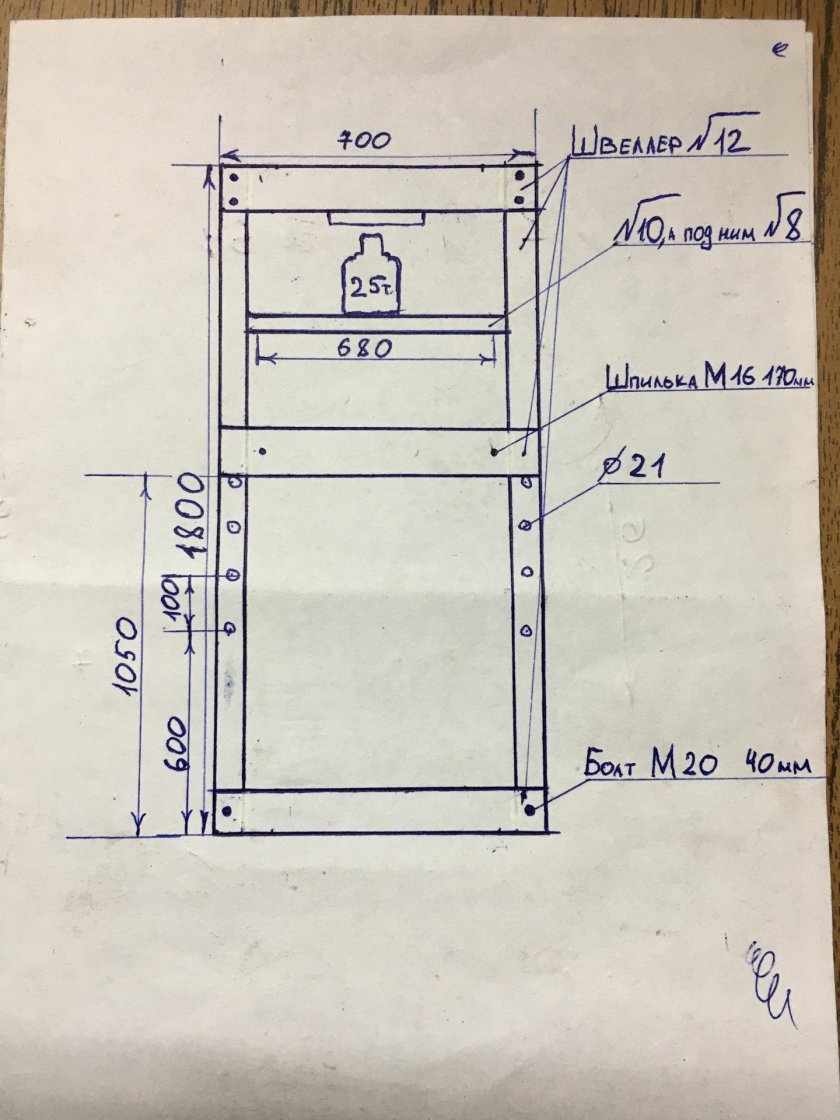 700
ШВЕЛЛЕР №12
№10, а под ним №8
25т.
680
Шпилька М16 170мм
⌀21
1800
100
1050
600
Болт М20 40мм